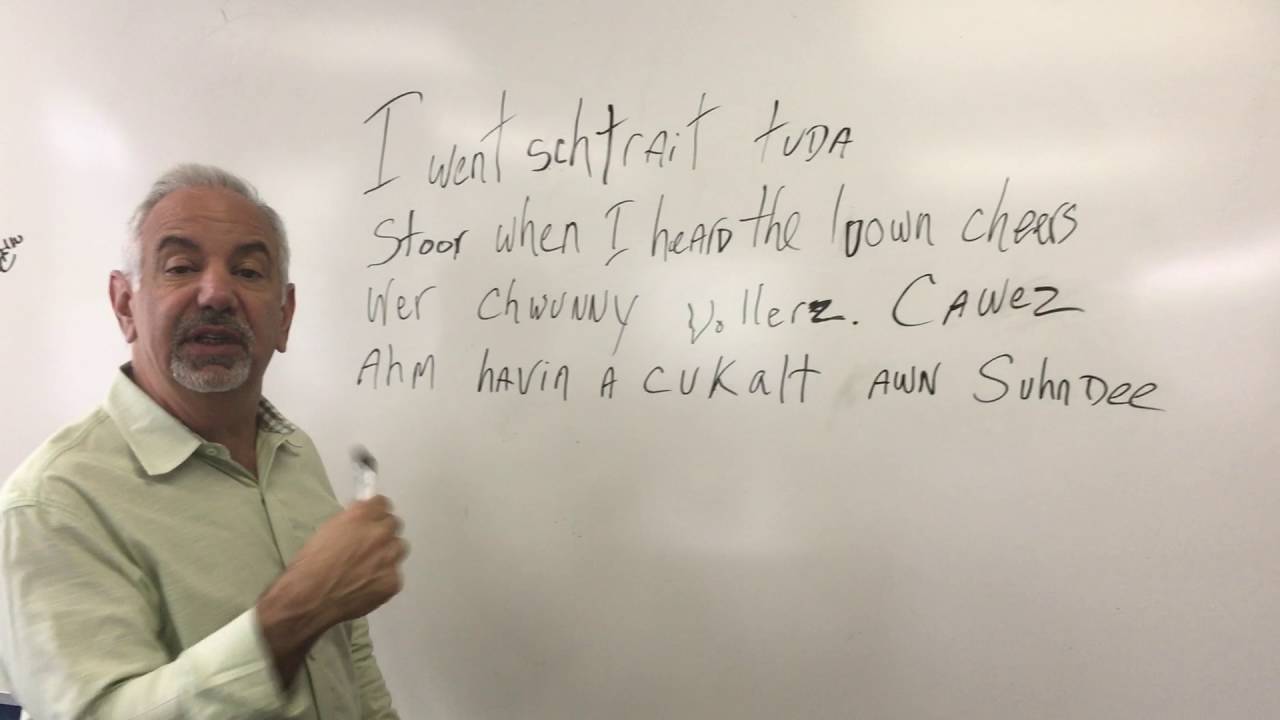 I went schtrait tuda
Stoor when I heard the loown cheers
Wer chwunny Dollerz. Cawez
Ahm havin a cukalt awn Suhndee